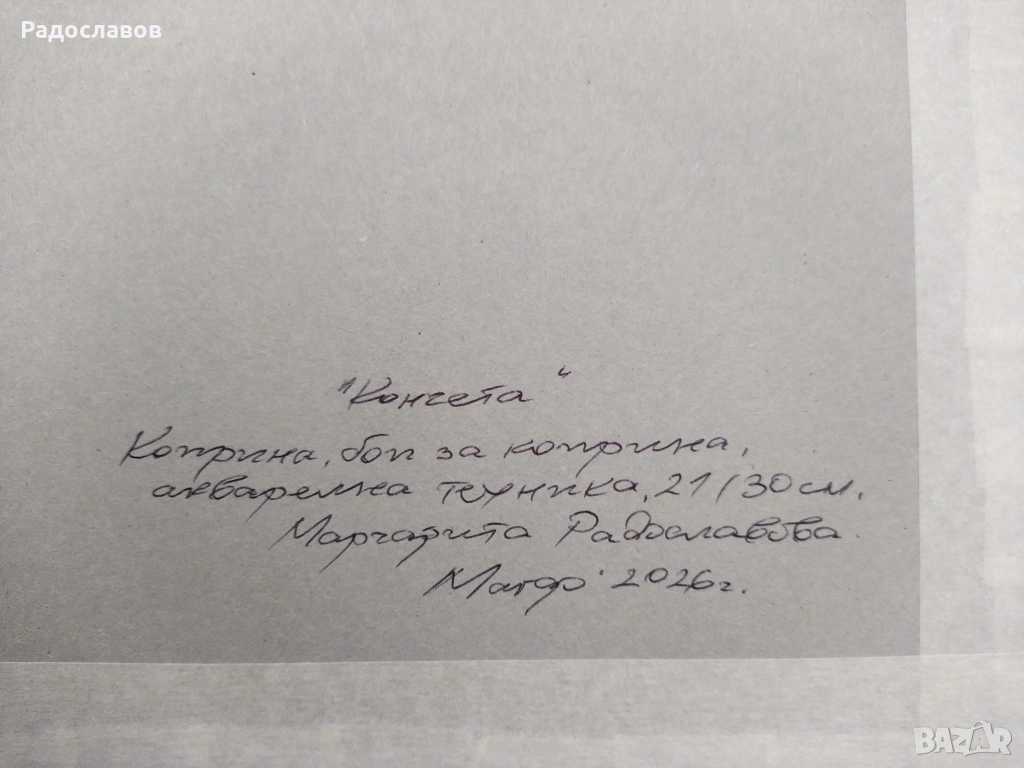 Радославов
"Кончета"
Коприна, бои за коприна,
акварелна техника, 21/30см.
Маргарита Радославова
2026г.
BAZAR